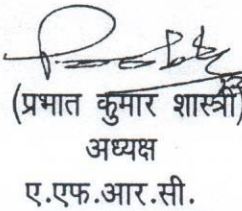 (प्रभात कुमार शास्त्री)
अध्यक्ष
ए.एफ.आर.सी.